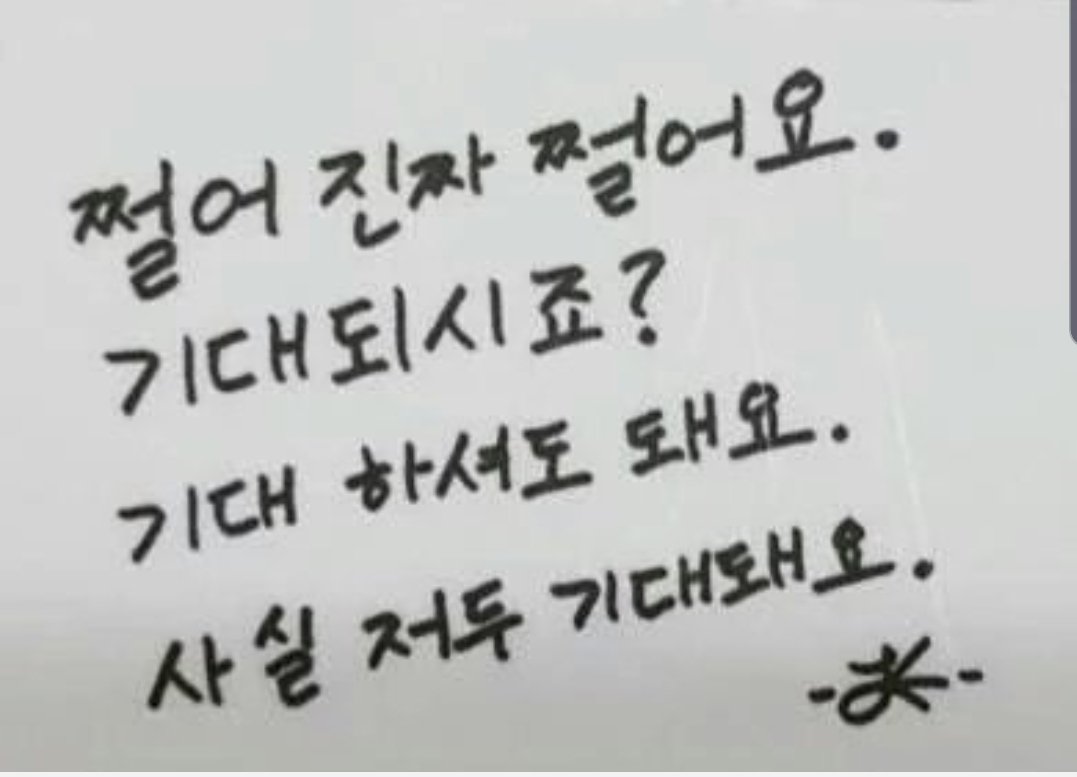 쩔어 진짜 쩔어요.
기대되시죠?
기대 하셔도 돼요.
사실 저두 기대돼요.